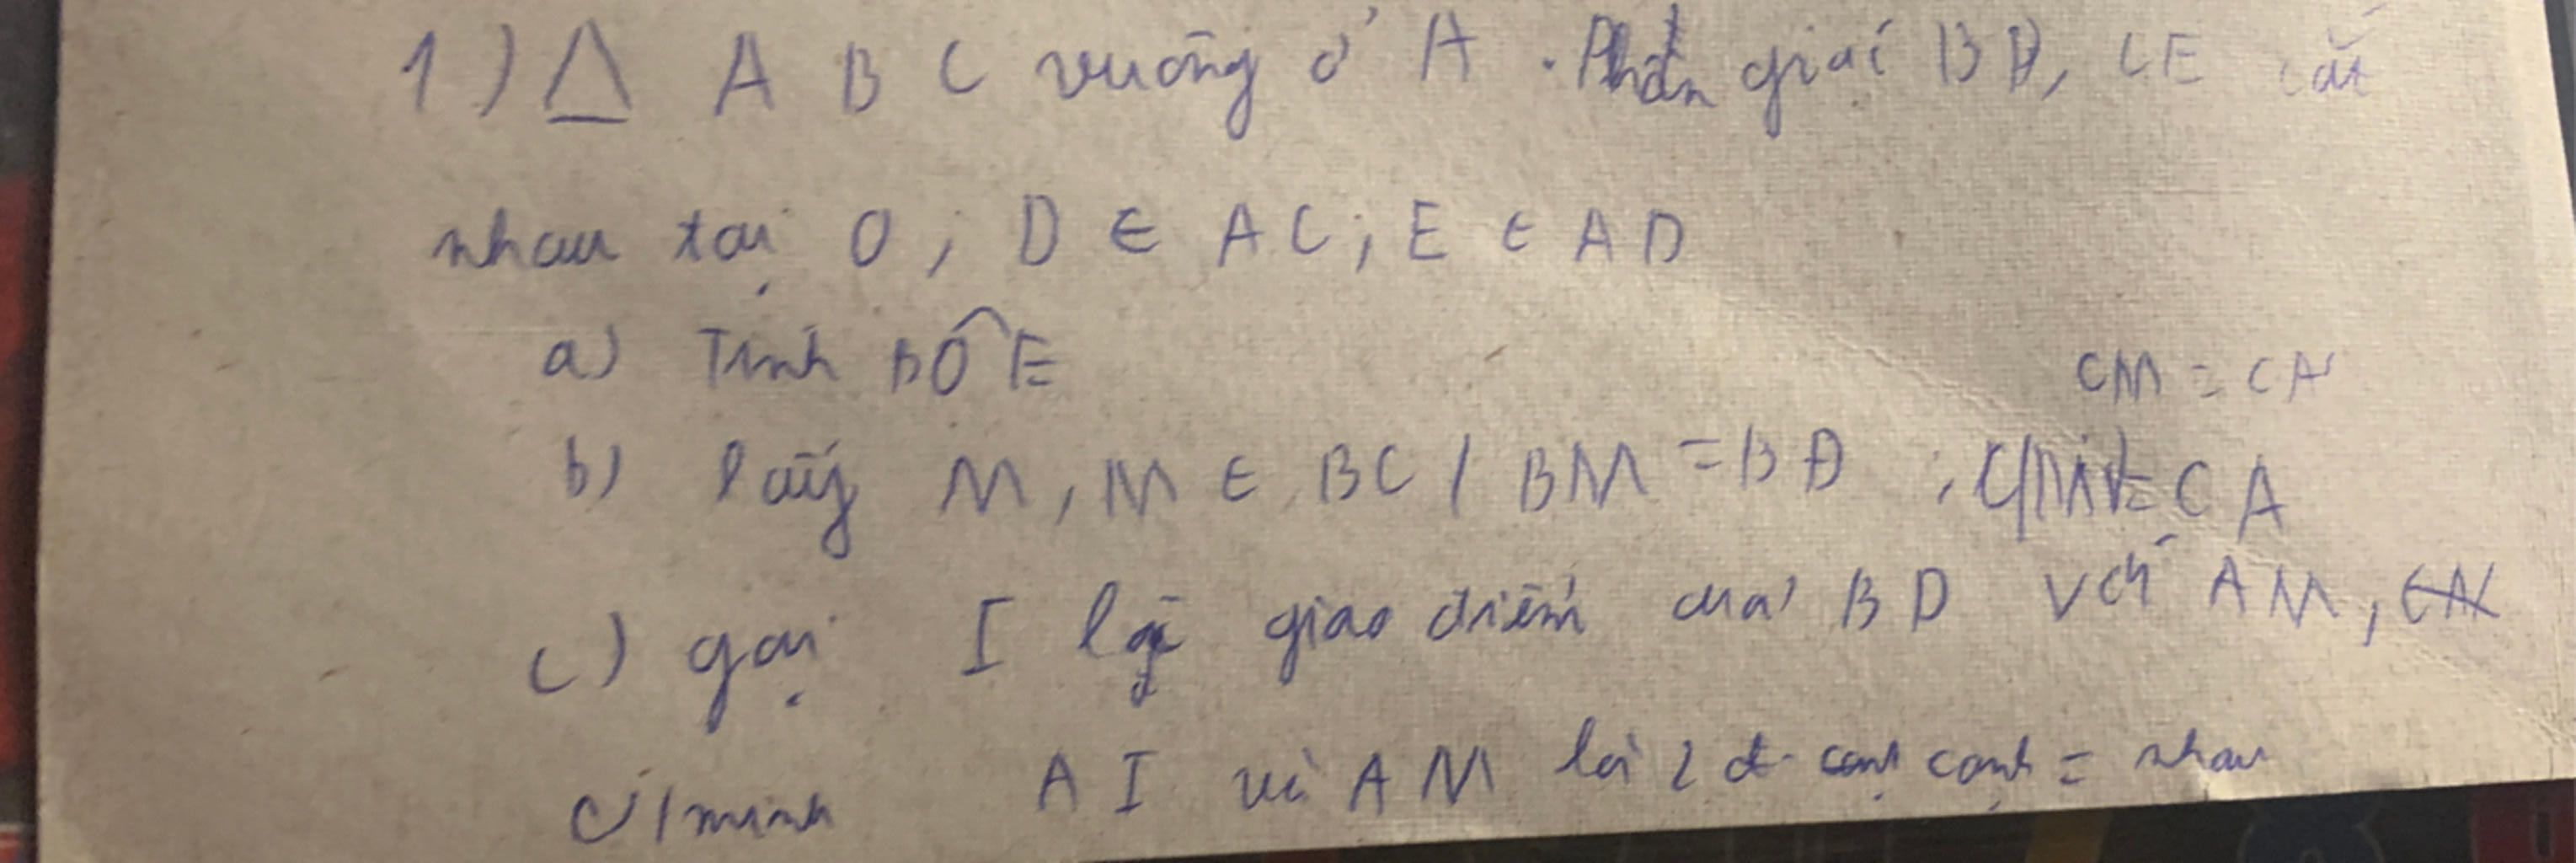 1) △ A B C vuông ở A. Phân giác BĐ, CE cắt
nhau tại O; D ∈ AC; E ∈ AD
a) Tính BÔE
CM = CA
b) Lấy M, M ∈ BC / BM = BĐ ; = CA
c) gọi I là giao điểm của BD với AM,
c/minh AI và AM là 2 cạnh = nhau